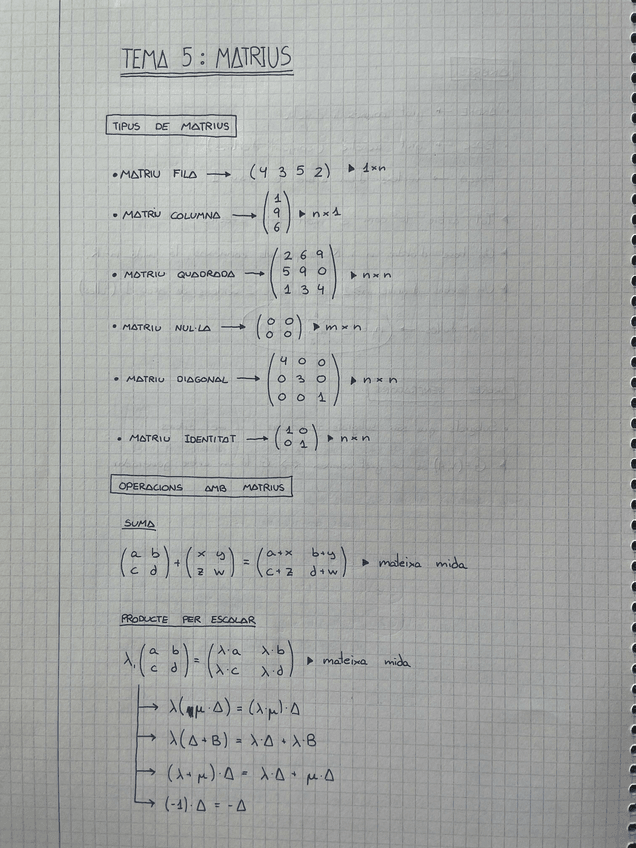 TEMA 5: MATRIUS
TIPUS DE MATRIUS
• MATRIU FILA → (4 3 5 2) ▶ 1×n
• MATRIU COLUMNA → (1 9 6) ▶ n×1
• MATRIU QUADRADA → (2 6 9 5 9 0 1 3 4) ▶ n×n
• MATRIU NUL·LA → (0 0 0 0) ▶ m×n
• MATRIU DIAGONAL → (4 0 0 0 3 0 0 0 1) ▶ n×n
• MATRIU IDENTITAT → (1 0 0 1) ▶ n×n
OPERACIONS AMB MATRIUS
SUMA
(a b c d) + (x y z w) = (a+x b+y c+z d+w) ▶ mateixa mida
PRODUCTE PER ESCALAR
λ·(a b c d) = (λ·a λ·b λ·c λ·d) ▶ mateixa mida
→ λ(μ·A) = (λ·μ)·A
→ λ(A+B) = λ·A + λ·B
→ (λ+μ)·A = λ·A + μ·A
→ (-1)·A = -A